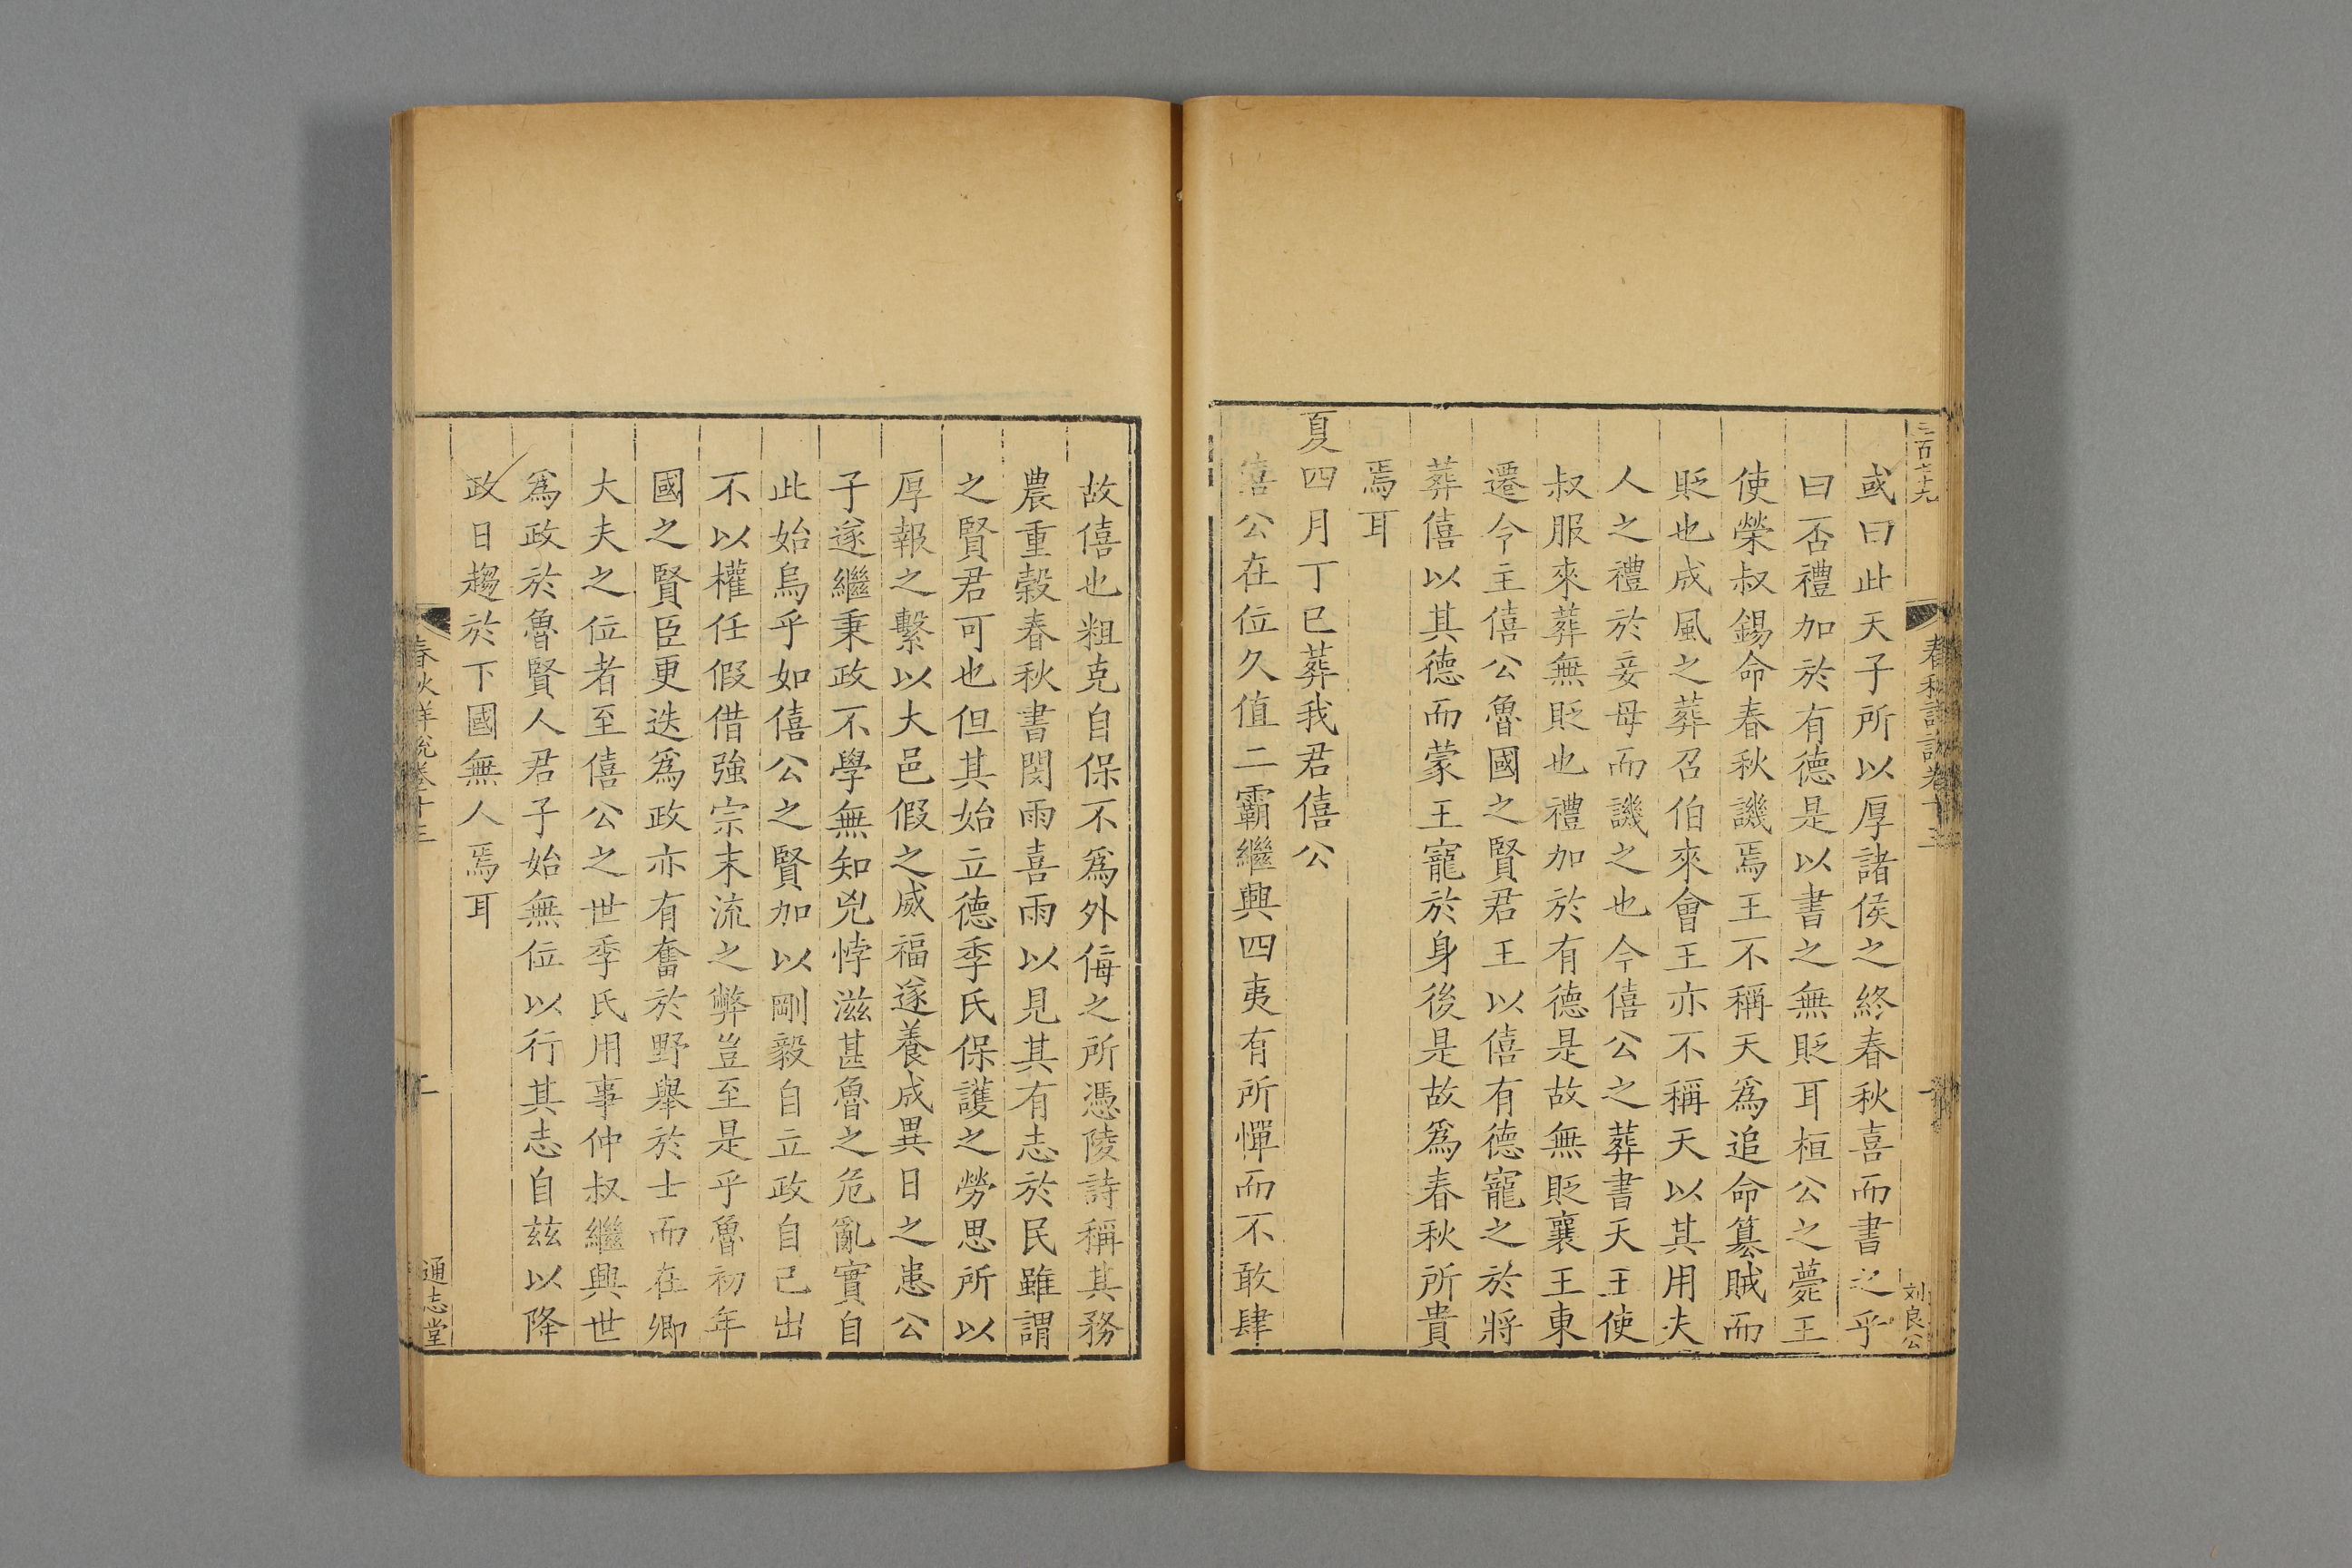 三百七十九
春秋詳說卷十三
刘良公
或曰此天子所以厚諸侯之終春秋喜而書之乎
曰否禮加於有德是以書之無貶耳桓公之薨王
使榮叔錫命春秋譏焉王不稱天爲追命篡賊而
貶也成風之葬召伯來會王亦不稱天以其用夫
人之禮於妾母而譏之也今僖公之葬書天王使
叔服來葬無貶也禮加於有德是故無貶襄王東
遷今主僖公魯國之賢君王以僖有德寵之於將
葬僖以其德而蒙王寵於身後是故爲春秋所貴
焉耳
夏四月丁巳葬我君僖公
僖公在位久值二霸繼興四夷有所憚而不敢肆
故僖也粗克自保不爲外侮之所憑陵詩稱其務
農重穀春秋書閔雨喜雨以見其有志於民雖謂
之賢君可也但其始立德季氏保護之勞思所以
厚報之繫以大邑假之威福遂養成異日之患公
子遂繼秉政不學無知兇悖滋甚魯之危亂實自
此始烏乎如僖公之賢加以剛毅自立政自己出
不以權任假借強宗末流之弊豈至是乎魯初年
國之賢臣更迭爲政亦有奮於野舉於士而在卿
大夫之位者至僖公之世季氏用事仲叔繼興世
爲政於魯賢人君子始無位以行其志自茲以降
政日趨於下國無人焉耳
春秋詳說卷十三
二
通志堂